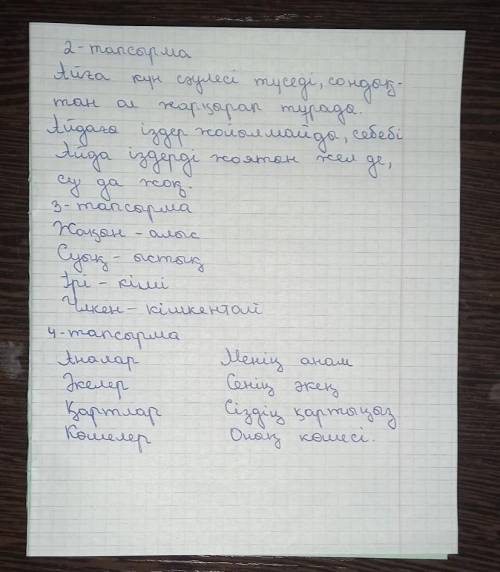 2-тапсырма
Айға күн сәулесі түседі, сондық-
тан ал жарқырап тұрады.
Айдағы іздер жойылмайды, себебі
Айда іздерді жоятын жел де,
су да жоқ.
3-тапсырма
Жақын - алыс
Суық - ыстық
Ірі - кіші
Үлкен - кішкентай
4-тапсырма
Аналар Менің анам
Әкелер Сенің әкең
Қартлар Сіздің қартыңыз
Көшелер Оның көшесі.